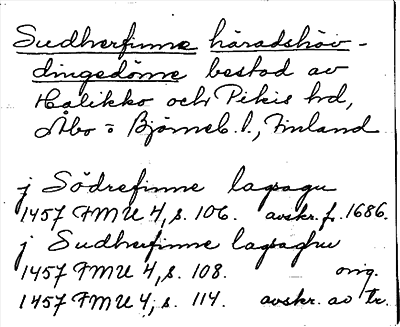 Sudherfinne häradshöv-
dingedöme bestod av
Halikko och Pikis hd,
Åbo o Björneb. l., Finland
j Södrefinne lagsagu
1457 FMU 4, s. 106. avskr. f. 1686.
j Sudherfinne lagsaghu
1457 FMU 4, s. 108. orig.
1457 FMU 4, s. 114. avskr. av tr.